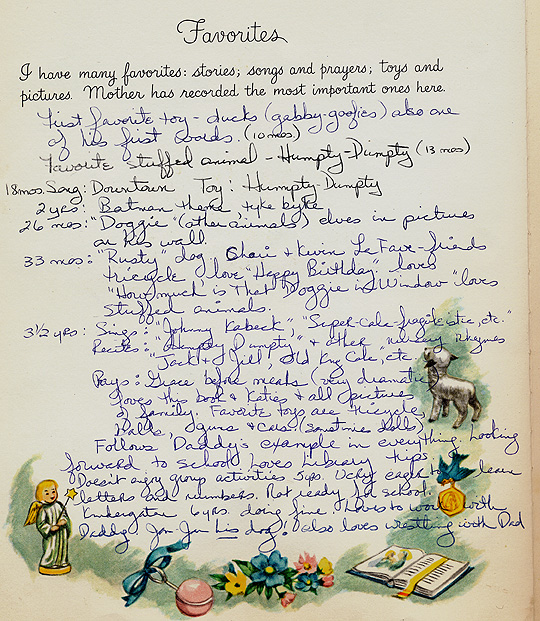 Favorites
I have many favorites: stories; songs and prayers; toys and
pictures. Mother has recorded the most important ones here.
First favorite toy - ducks (gabby-goofies) also one
of his first words. (10 mos)
Favorite stuffed animal - Humpty-Dumpty (13 mos)
18 mos. Song: Downtown Toy: Humpty-Dumpty
2 yrs: Batman theme, tyke byke
26 mos: "Doggie" (other animals) elves in pictures
on his wall.
33 mos: "Rusty" dog Cheri & Kevin LeFave - friends
tricycle, love "Happy Birthday" loves
"How much is That Doggie in Window" loves
stuffed animals.
3 1/2 yrs: Sings: "Johnny Kabeck", "Super-Cala-fragilistic, etc."
Recites: "Humpty Dumpty" & other nursery rhymes
"Jack & Jill", Old King Cole, etc.
Prays: Grace before meals (very dramatic)
Loves this book & Katie's & all pictures
of family. Favorite toys are tricycle,
balls, guns & cars. (sometimes dolls)
Follows Daddy's example in everything. Looking
forward to school. Loves Library trips.
Doesn't enjoy group activities 5yrs. Very eager to learn
letters and numbers. Not ready for school.
Kindergarten 6 yrs. doing fine. Loves to work with
Daddy. Jon-Jon his dog! also loves wrestling with Dad